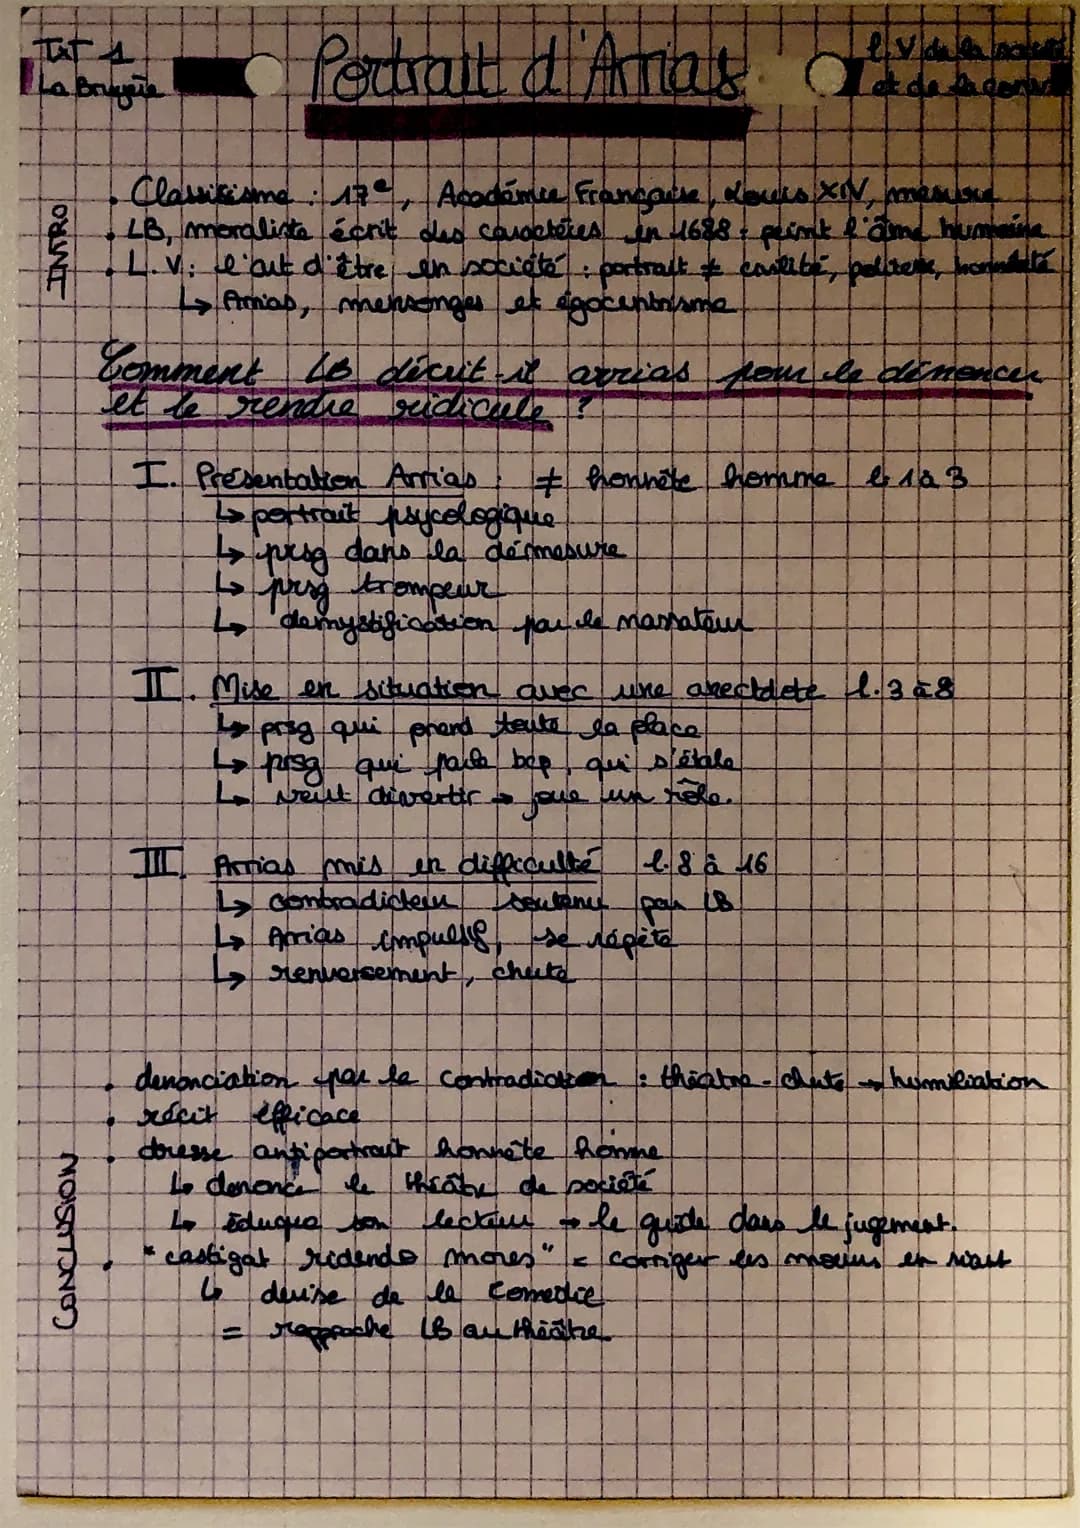 TXT 1
La Bruyère
Portrait d'Arrias
L.V de la société
et de la conv
INTRO
. Classicisme : 17e, Académie Française, Louis XIV, mesure
. LB, moraliste écrit des caractères en 1688 + peint l'âme humaine
. L.V : l'art d'être en société : portrait ≠ civilité, politesse, honnêteté
↳ Arrias, mensonges et égocentrisme
Comment LB décrit-il arrias pour le dénoncer
et le rendre ridicule ?
I. Présentation Arrias : ≠ honnête homme l. 1 à 3
↳ portrait psycologique
↳ prsg dans la démesure
↳ prsg trompeur
↳ demystification par le narrateur
II. Mise en situation avec une anectdote l. 3 à 8
↳ prsg qui prend toute la place
↳ prsg qui parle bcp, qui s'étale
↳ veut divertir → joue un rôle.
III. Arrias mis en difficulté l. 8 à 16
↳ contradicteur soutenu par LB
↳ Arrias impulsif, se répète
↳ renversement, chute
CONCLUSION
. denonciation par la contradiction : théatre - chute → humiliation
. récit efficace
. dresse antiportrait honnête homme
↳ denonce le théâtre de société
↳ éduque son lecteur → le guide dans le jugement.
. "castigat ridendo mores" = corriger les moeurs en riant
↳ devise de la Comedie
= rapproche LB au théâtre